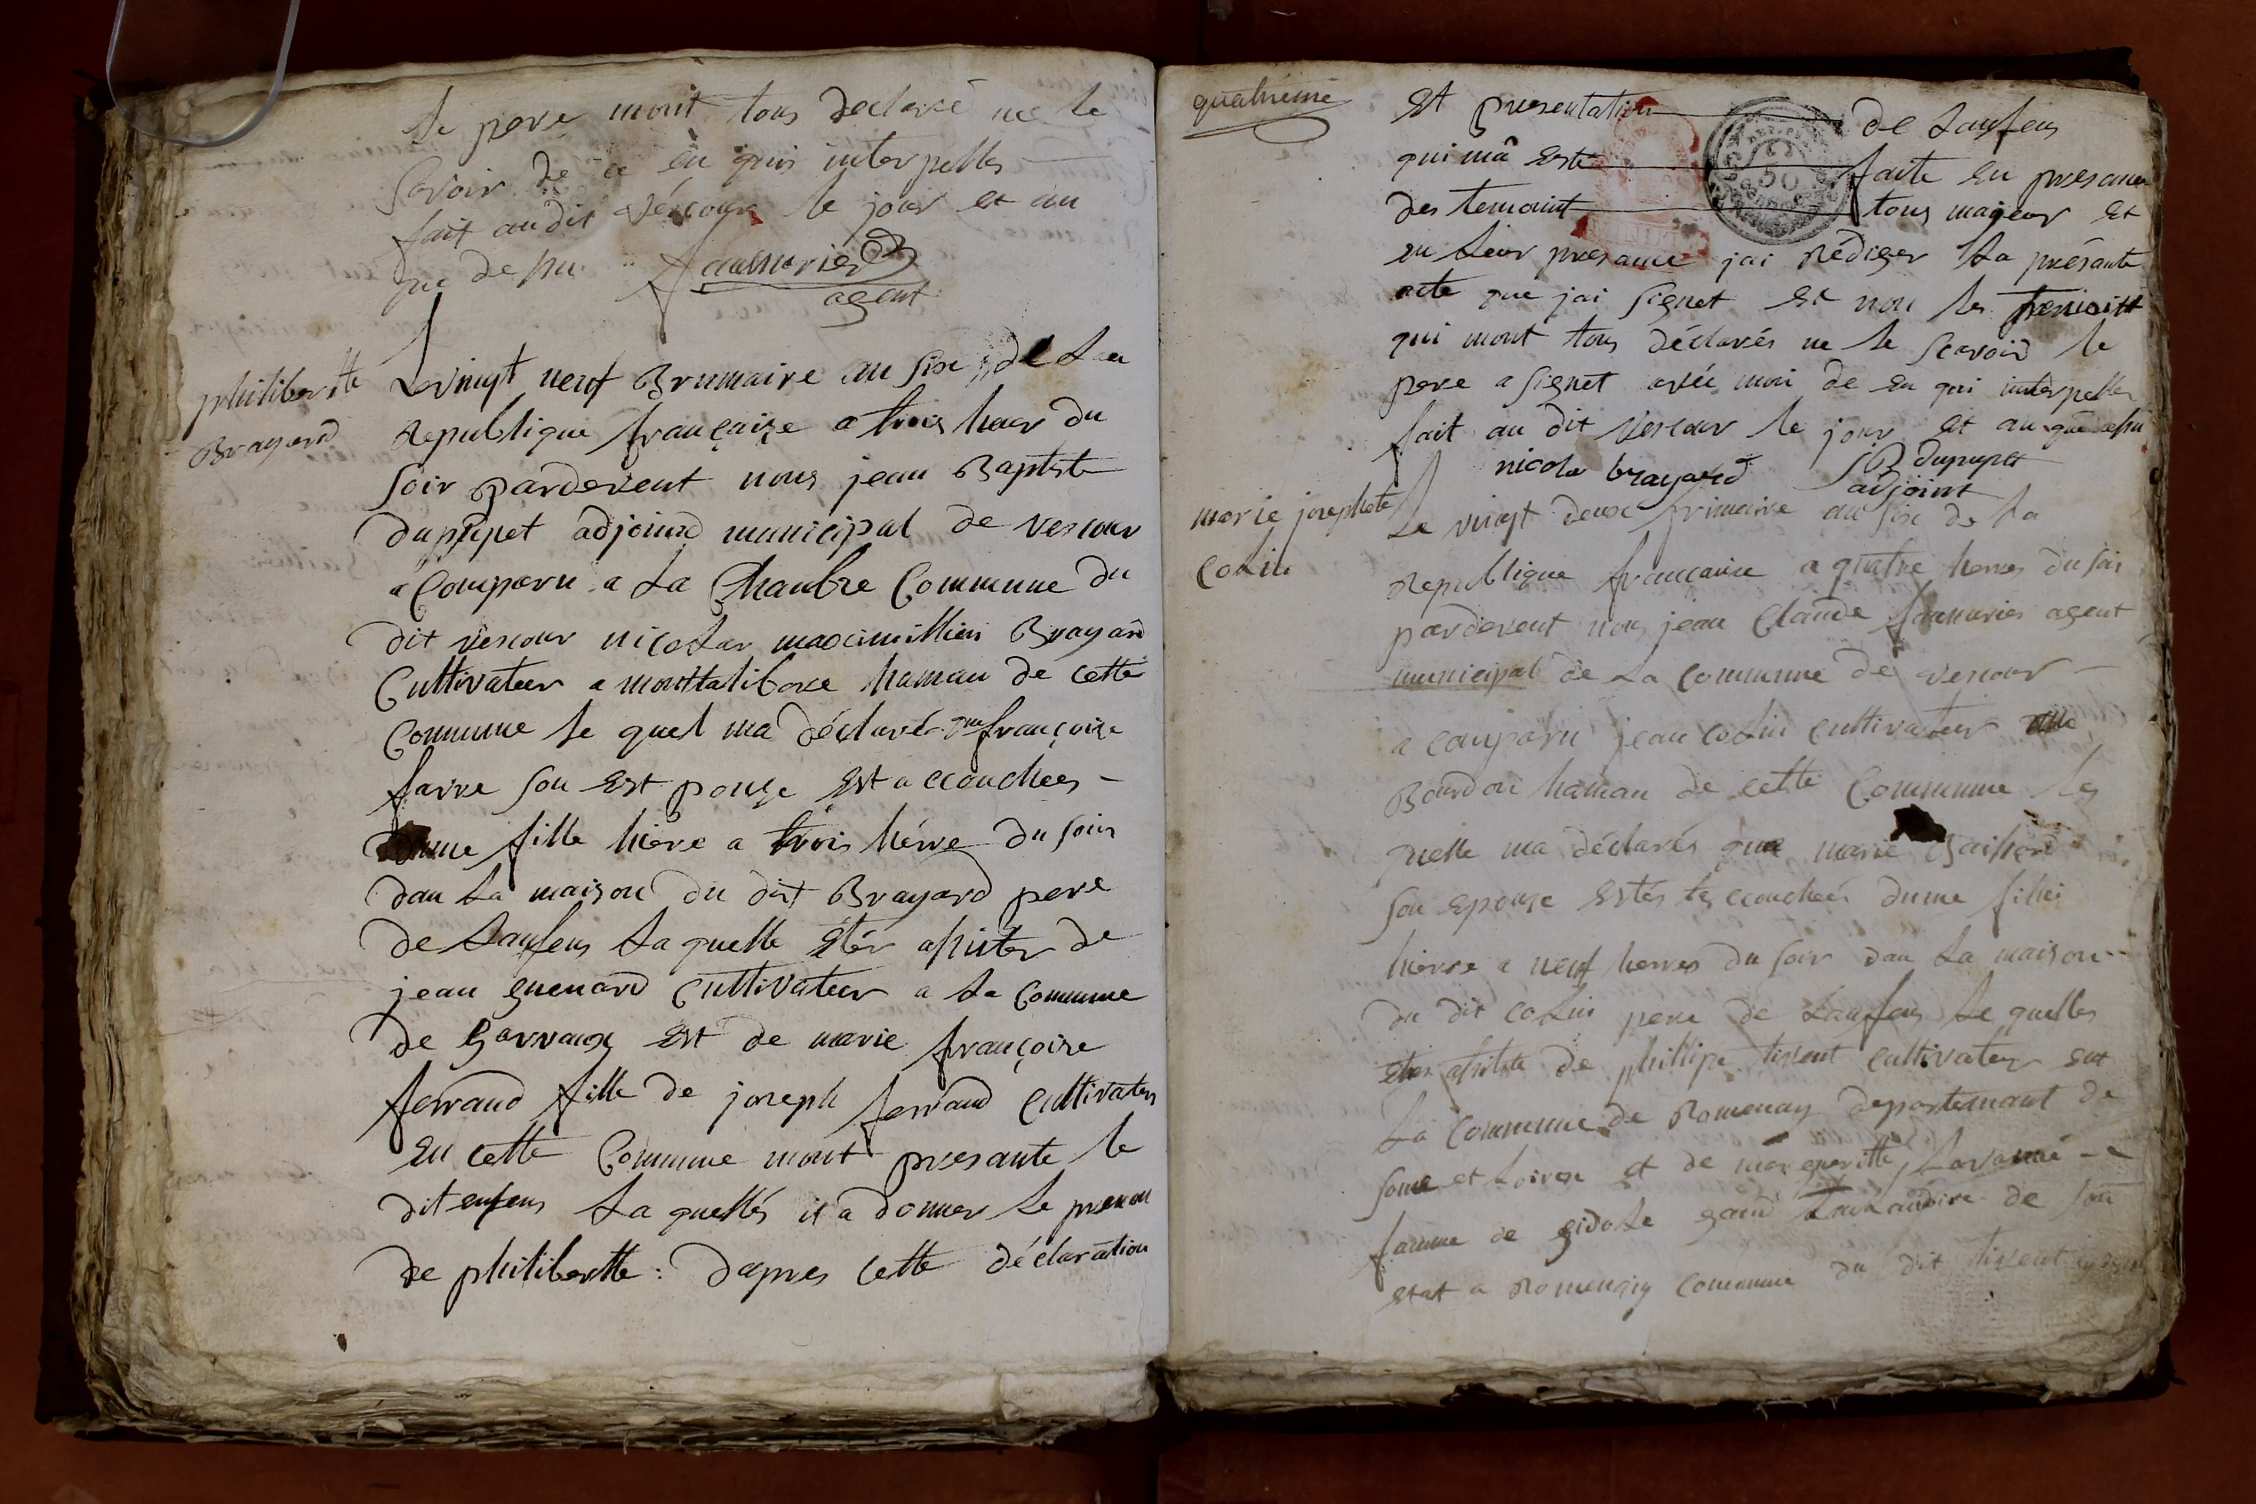 le pere mont tous declaré ne le
savoir de ce en quis interpelles
fait audit vécour le jour et an
que de su
agent
philiberthe
Brayard
Le vingt neuf Brumaire an six de La
republique françaize a trois heur du
soir pardevent nous jean Baptiste
dupupet adjoind municipal de vescour
a Comparu a La Chambre Commune du
dit vescour nicolas maximillien Brayard
Cultivateur a monttalibore hamau de cette
Commune le quel ma déclaré que françoize
favre son Est pouze Est accouchées
dunne fille hiere a trois hérre du soir
dan La maison du dit Brayard pere
de Lanfens La quelle étér assister de
jean guenard Cultivateur a La Commune
de Est de marie françoize
ferraud fille de joseph ferraud Cultivateur
En cette Commune mont presanté le
dit enfens La quellés il a donner Le prenon
de philiberthe : dapres cette déclaration
quatriéme
Et presentation de Lanfens
qui mâ Esté faite En presance
des temoint tous majeur Et
en Leur presance jai Rédiger La présante
acte que jai signet Et non les temoint
qui mont tous déclarés ne le scavoir le
pere a signet avée moi de En qui interpelles
fait au dit vescour le jour Et an que dessu
nicola brayard JB dupupet
adjoint
marie josephete
Colin
Le vingt deux frimaire an six de La
Republique françaize a quatre herres du soir
pardevent nous jean Claude agent
municipal de La Commune de vescour
a comparu jean colin cultivateur
Bourdon hamau de cette Commune Les
quelle ma déclarés que marie
son Epouze Estés les ccouchées dunne fillei
hierre a neuf herres du soir dan La maison
du dit coLin pere de Lanfens Le quelles
assiste de phillipe tissent cultivateur sut
La Commune de Romenay departemant de
sonne et Loirre et de margueritte
famme de de son
Etat a Romenay commune du dit tissent